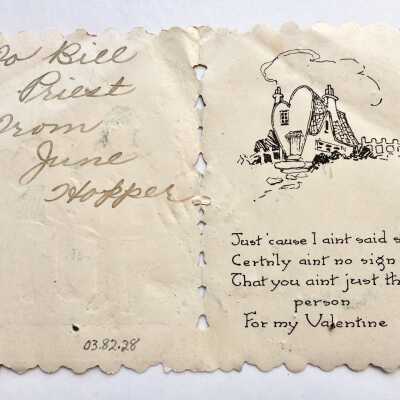 To Bill
Priest
From
June
Hopper
03.82.28
Just 'cause I aint said s
Certnly aint no sign
That you aint just th
person
For my Valentine